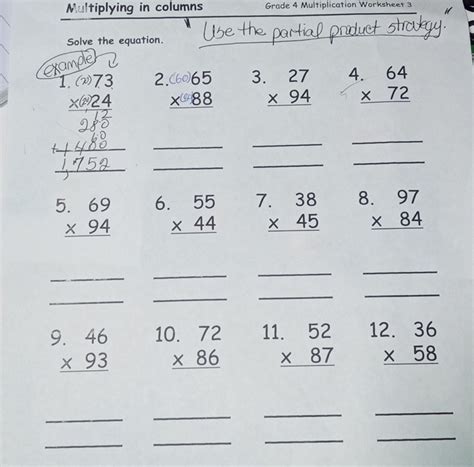 Multiplying in columns Grade 4 Multiplication Worksheet 3
Solve the equation. Use the partial product strategy.
example
1. (70)73 2. (60)65 3. 27 4. 64
x(20)24 x(80)88 x 94 x 72
12
280
60
+1400
1,752
5. 69 6. 55 7. 38 8. 97
x 94 x 44 x 45 x 84
9. 46 10. 72 11. 52 12. 36
x 93 x 86 x 87 x 58